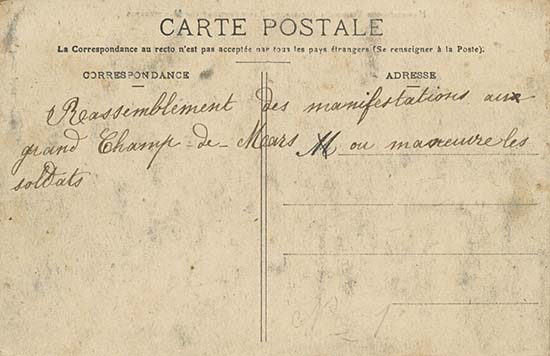 CARTE POSTALE
La Correspondance au recto n'est pas acceptée par tous les pays étrangers (Se renseigner à la Poste).
CORRESPONDANCE
ADRESSE
Rassemblement des manifestations aux
grand Champ-de-Mars M ou maneuvre les
soldats